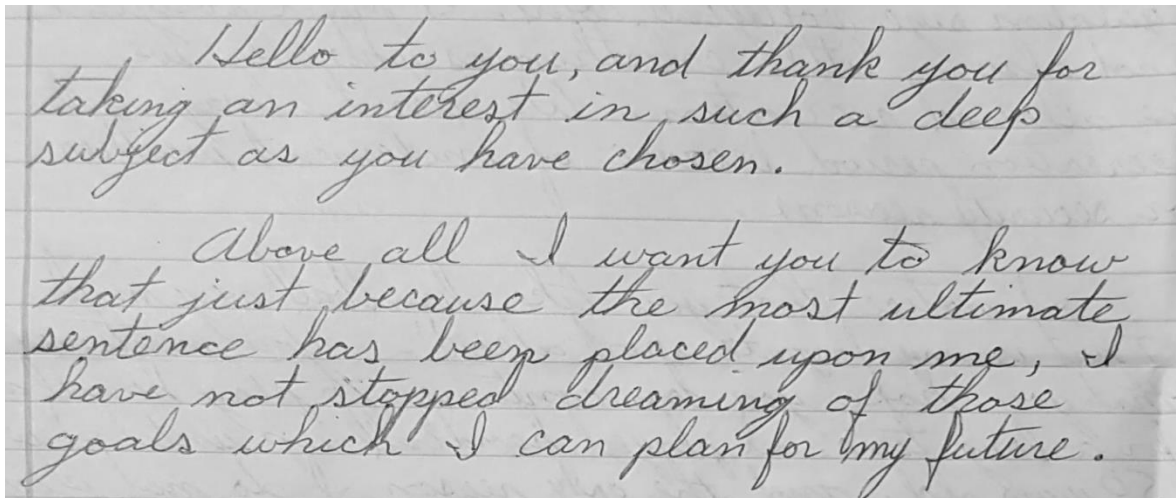 Hello to you, and thank you for
taking an interest in such a deep
subject as you have chosen.
Above all I want you to know
that just because the most ultimate
sentence has been placed upon me, I
have not stopped dreaming of those
goals which I can plan for my future.